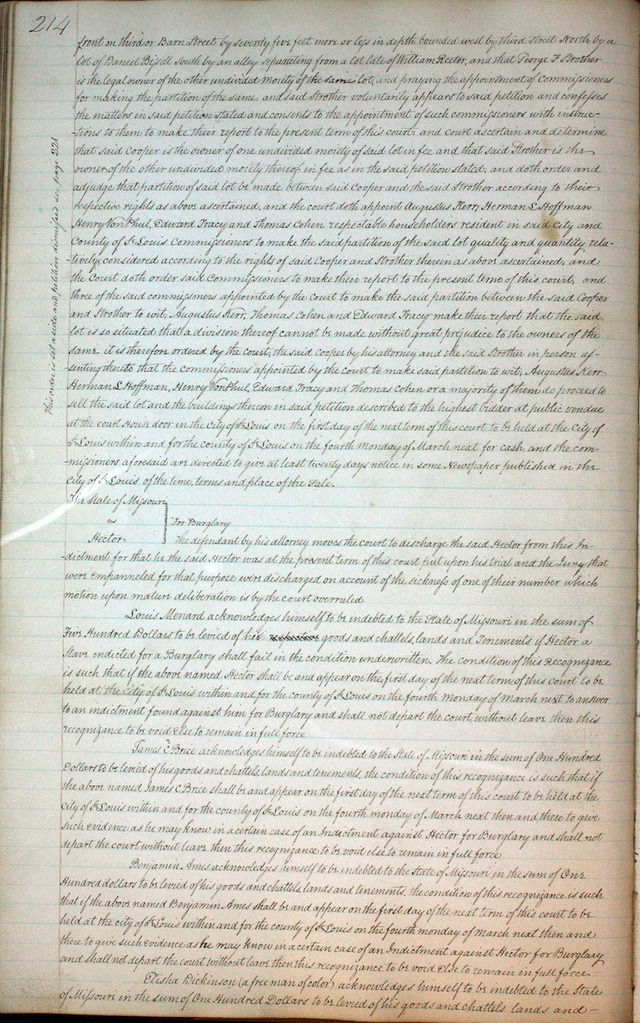 214
front on third or Barn Street by seventy five feet more or less in depth bounded west by third street North by a
lot of Daniel Bissell south by an alley separating from a lot late of William Rector, and that George F Strother
is the legal owner of the other undivided moiety of the same lot, and praying the appointment of Commissioners
for making the partition of the same, and said Strother voluntarily appears to said petition and confesses
the matters in said petition stated and consents to the appointment of such commissioners with instruc-
-tions to them to make their report to the present term of this court. and court ascertain and determine
that said Cooper is the owner of one undivided moiety of said lot in fee and that said Strother is the
owner of the other undivided moiety thereof in fee as in the said petition stated. and doth order and
adjudge that partition of said lot be made between said Cooper and the said Strother according to their
respective rights as above ascertained, and the court doth appoint Augustus Kerr, Herman L Hoffman
Henry Von Phul, Edward Tracy and Thomas Cohen respectable householders resident in said City and
County of St Louis Commissioners to make the said partition of the said lot quality and quantity rela-
-tively considered according to the rights of said Cooper and Strother therein as above ascertained, and
the Court doth order said Commissioners to make their report to the present term of this court, and
three of the said commissioners appointed by the court to make the said partition between the said Cooper
and Strother to wit, Augustus Kerr, Thomas Cohen and Edward Tracy make their report that the said
lot is so situated that a division thereof cannot be made without great prejudice to the owners of the
same it is therefore ordered by the court, the said cooper by his attorney and the said Strother in person as-
-senting thereto that the commissioners appointed by the court to make said partition to wit, Augustus Kerr
Herman L Hoffman, Henry Von Phul, Edward Tracy and Thomas Cohen or a majority of them do proceed to
sell the said lot and the buildings thereon in said petition described to the highest bidder at public vendue
at the court House door in the city of St Louis on the first day of the next term of this court to be held at the City of
St Louis within and for the county of St Louis on the fourth Monday of March next for cash, and the com-
-missioners aforesaid are directed to give at least twenty days notice in some Newspaper published in the
City of St Louis, of the time, terms and place of the Sale.
This order is set aside and petition dismissed see page 221
The State of Missouri
vs
Hector
For Burglary
The defendant by his attorney moves the court to discharge the said Hector from this In-
-dictment for that he the said Hector was at the present term of this court put upon his trial and the Jury that
were empanneled for that purpose were discharged on account of the sickness of one of their number which
motion upon mature deliberation is by the court overruled
Louis Menard acknowledges himself to be indebted to the State of Missouri in the sum of
Five Hundred Dollars to be levied of his goods and chattels, lands and Tenements if Hector a
Slave indicted for a Burglary shall fail in the condition underwritten. The condition of this Recognizance
is such that if the above named Hector shall be and appear on the first day of the next term of this court to be
held at, the City of St Louis within and for the county of St Louis on the fourth Monday of March next to answer
to an indictment found against him for Burglary and shall not depart the court without leave then this
recognizance to be void Else to remain in full force
James C Brice acknowledges himself to be indebted to the State of Missouri in the sum of One Hundred
Dollars to be levied of his goods and chattels, lands and tenements, the condition of this recognizance is such that if
the above named James C Brice shall be and appear on the first day of the next term of this court to be held at the
City of St Louis within and for the county of St Louis on the fourth monday of March next then and there to give
such evidence as he may know in a certain case of an Indictment against Hector for Burglary and shall not
depart the court without leave then this recognizance to be void else to remain in full force
Benjamin Ames acknowledges himself to be indebted to the State of Missouri in the sum of One
Hundred dollars to be levied of his goods and chattels, lands and tenements, the condition of this recognizance is such
that if the above named Benjamin Ames shall be and appear on the first day of the next term of this court to be
held at the city of St Louis within and for the county of St Louis on the fourth monday of March next then and
there to give such evidence as he may know in a certain case of an Indictment against Hector for Burglary
and shall not depart the court without leave then this recognizance to be void Else to remain in full force
Elisha Dickinson (a free man of color) acknowledges himself to be indebted to the State
of Missouri in the sum of One Hundred Dollars to be levied of his goods and chattels lands and-